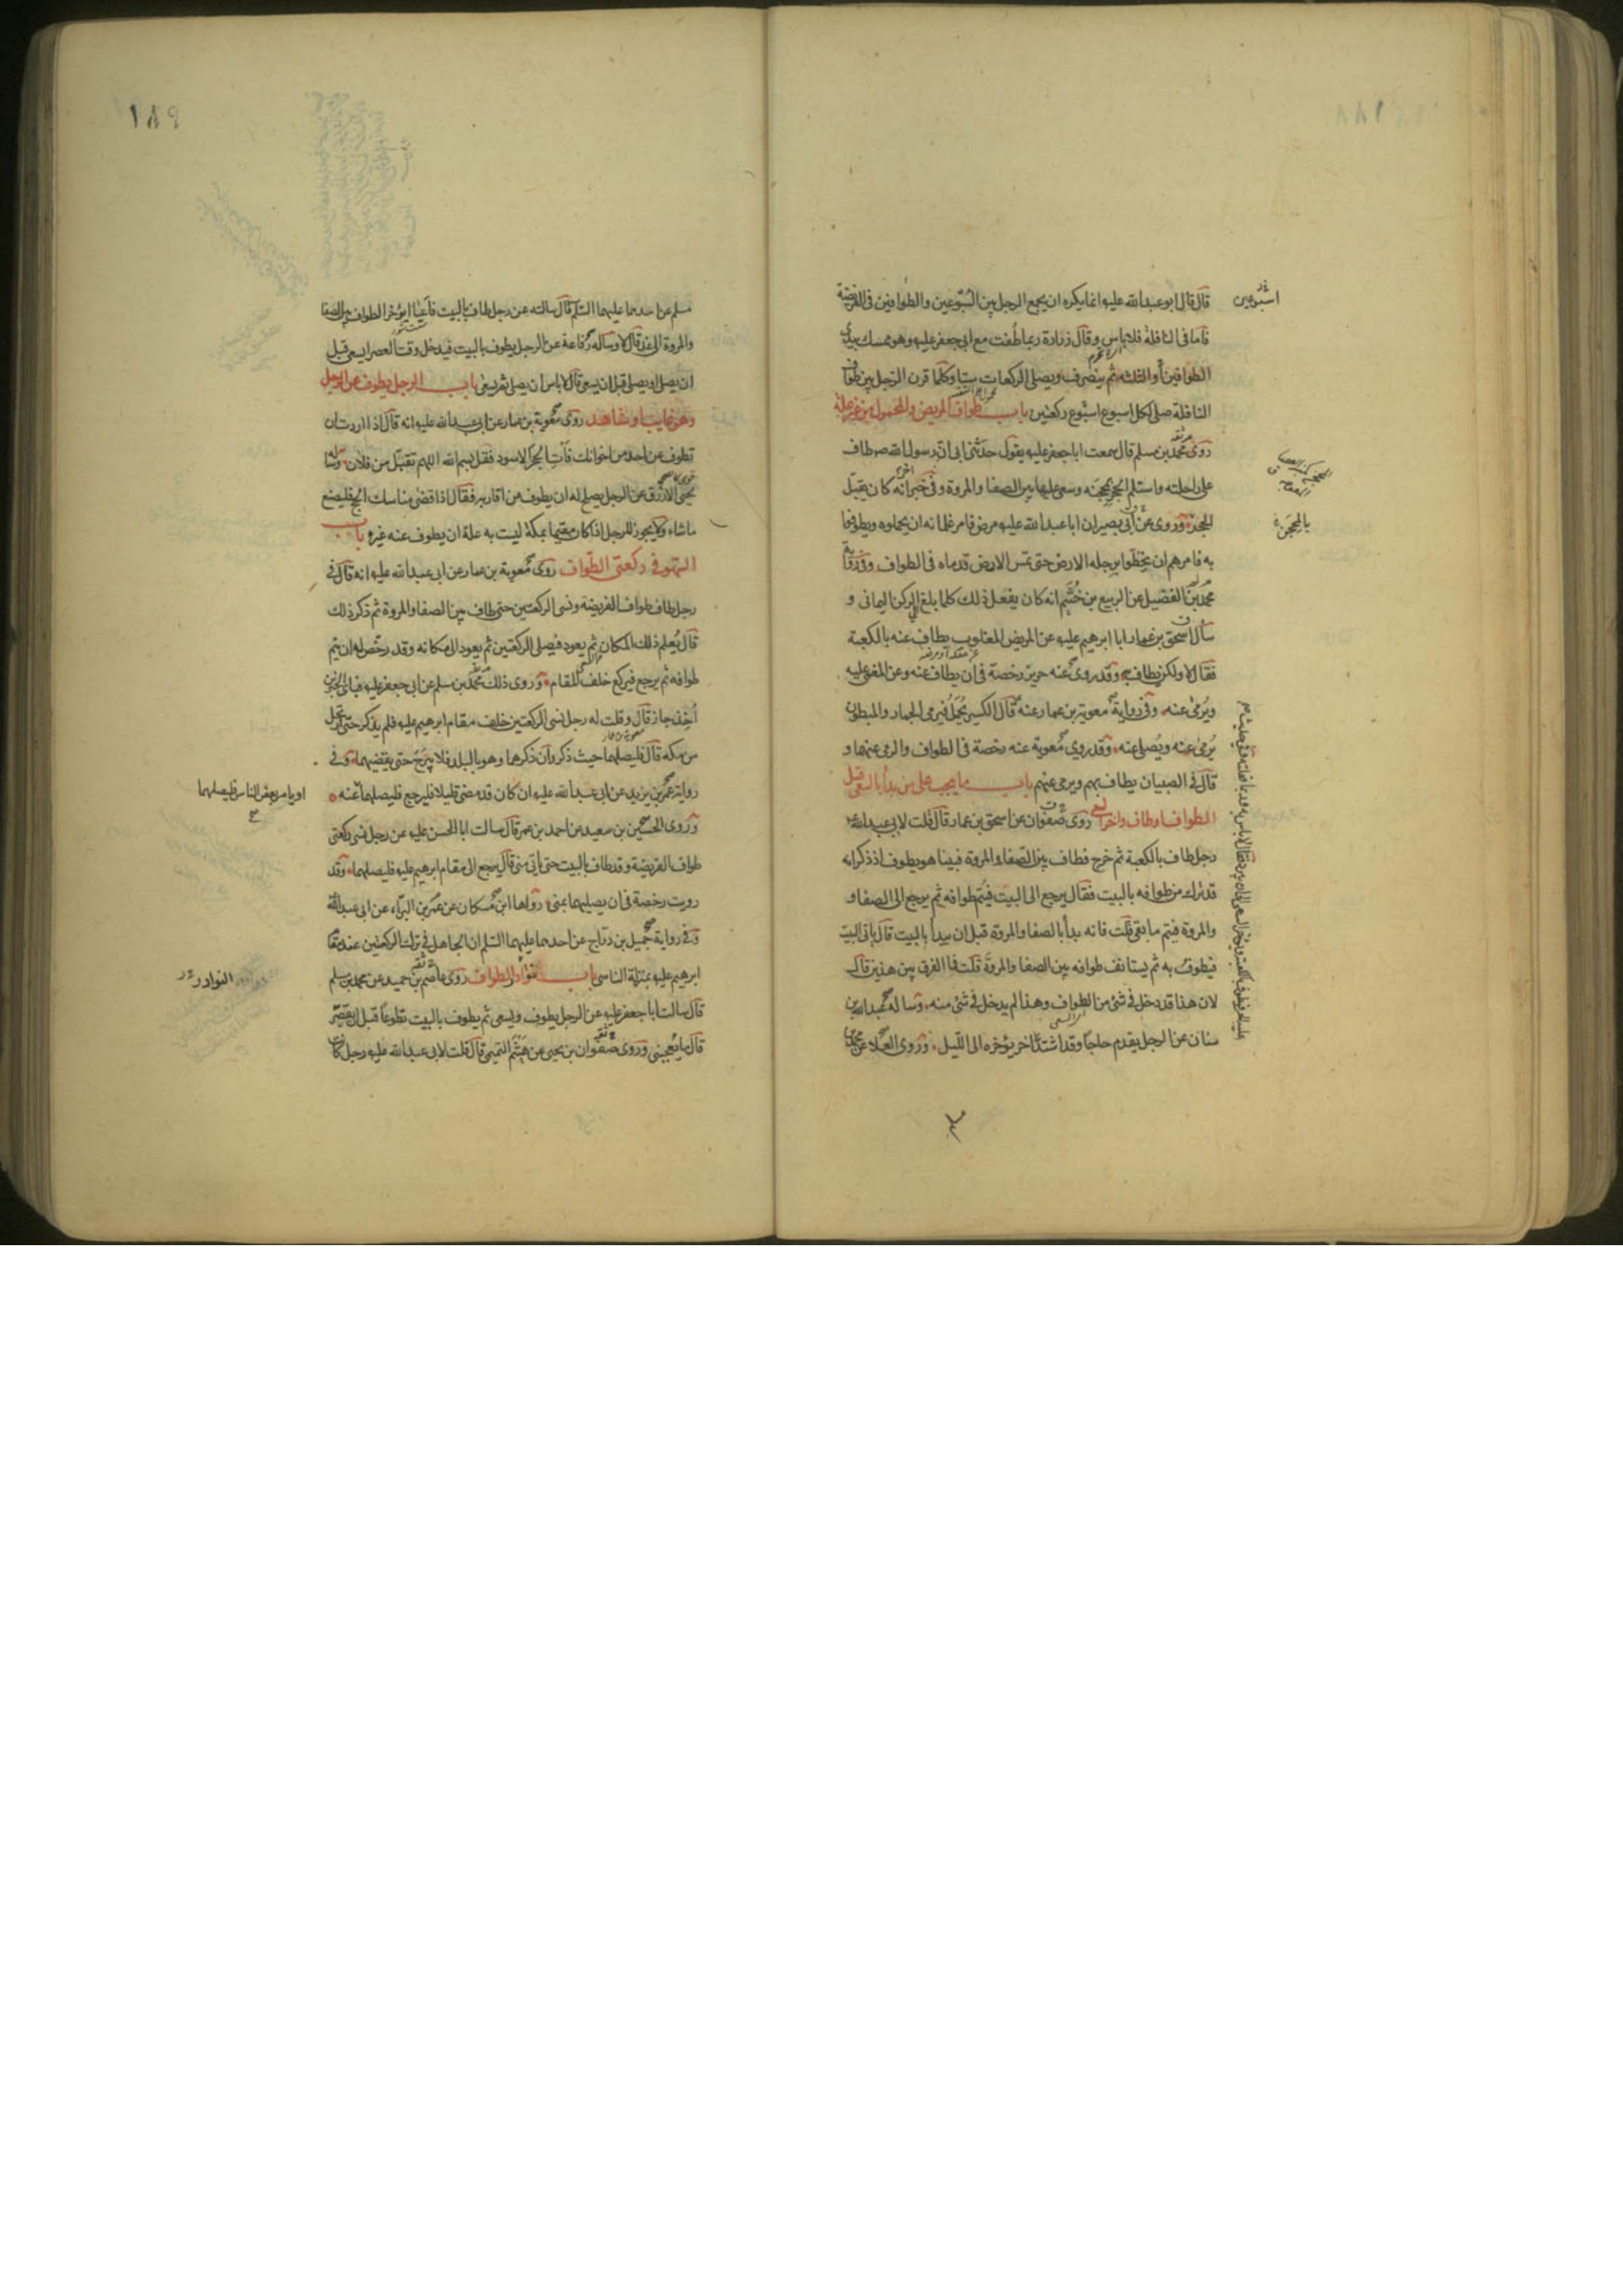 قال قال ابو عبدالله عليه انما يكره ان يجمع الرجل بين السبوعين والطوافين فى الفريضة
فاما فى النافلة فلا باس وقال زرارة ربما طفت مع ابى جعفر عليه وهو ممسك بيدى
الطوافين أو الثلثه ثم ينصرف ويصلى الركعات ستا وكلما قرن الرجل بين طواف
النافلة صلى لكل اسبوع اسبوع ركعتين باب طواف المريض والمحمول من غير علة
روى محمد بن مسلم قال سمعت ابا جعفر عليه يقول حدثنى ابى ان رسول الله ص طاف
على راحلته واستلم الحجر بمحجنه وسعى عليها بين الصفا والمروة وفى خبر اخر انه كان يقبل
المحجن وروى عن ابى بصير ان ابا عبدالله عليه مرض فامر غلمانه ان يحملوه ويطوفوا
به فامرهم ان يخطوا برجله الارض حتى تمس الارض قدماه فى الطواف وفى رواية
محمد بن الفضيل عن الربيع بن خثيم انه كان يفعل ذلك كلما بلغ الى الركن اليمانى و
سأل اسحق بن عمار ابا ابرهيم عليه عن المريض المغلوب يطاف عنه بالكعبة
فقال لا ولكن يطاف به وقد روى عنه حريز رخصة فى ان يطاف عنه وعن المغمى عليه
ويرمى عنه وفى رواية معوية بن عمار عنه قال الكسير يحمل فيرمى الجمار والمبطون
يرمى عنه ويصلى عنه وقد روى معوية عنه رخصة فى الطواف والرمى عنهما و
قال فى الصبيان يطاف بهم ويرمى عنهم باب ما يجب على من بدأ بالسعى قبل
الطواف او طاف واخر السعى روى صفوان عن اسحق بن عمار قال قلت لابى عبدالله
رجل طاف بالكعبة ثم خرج فطاف بين الصفا والمروة فبينا هو يطوف اذ ذكر انه
قد ترك من طوافه بالبيت فقال يرجع الى البيت فيتم طوافه ثم يرجع الى الصفا و
والمروة فيتم ما بقى قلت فانه بدأ بالصفا والمروة قبل ان يبدأ بالبيت قال ياتى البيت
فيطوف به ثم يستانف طوافه بين الصفا والمروة قلت فما الفرق بين هذين قال
لان هذا قد دخل فى شئ من الطواف وهذا لم يدخل فى شئ منه وساله عبدالله بن
سنان عن الرجل يقدم حاجا وقد اشتد الحر يؤخره الى الليل وروى العلا عن محمد بن
اسبوعين
بالمحجن
مسلم
١٨٩
مسلم عن احدهما عليهما السلم قال سالته عن رجل طاف بالبيت فاعيا ايؤخر الطواف بين الصفا
والمروة الى غد قال لا وساله رفاعة عن الرجل يطوف بالبيت فيدخل وقت العصر ايسعى قبل
ان يصلى او يصلى قبل ان يسعى قال لا باس ان يصلى ثم يسعى باب الرجل يطوف عن الرجل
وهو غايب او شاهد روى معوية بن عمار عن ابى عبدالله عليه انه قال اذا اردت ان
تطوف عن احد من اخوانك فأت الحجر الاسود فقل بسم الله اللهم تقبل من فلان وسال
يحيى الازرق عن الرجل يصلح له ان يطوف عن اقاربه فقال اذا قضى مناسك الحج فليصنع
ما شاء ولا يجوز للرجل اذا كان مقيما بمكة ليست به علة ان يطوف عنه غيره باب
السهو فى ركعتى الطواف روى معوية بن عمار عن ابى عبدالله عليه انه قال فى
رجل طاف طواف الفريضة ونسى الركعتين حتى طاف بين الصفا والمروة ثم ذكر ذلك
قال يعلم ذلك المكان ثم يعود فيصلى الركعتين ثم يعود الى مكانه وقد رخص له ان يتم
طوافه ثم يرجع فيركع خلف المقام وروى ذلك محمد بن مسلم عن ابى جعفر عليه فباى الخبرين
أخذ جاز قال وقلت له رجل نسى الركعتين خلف مقام ابرهيم عليه فلم يذكر حتى ارتحل
من مكه قال فليصلهما حيث ذكر وان ذكرهما وهو بالبلد فلا يبرح حتى يقضيهما وفى
رواية عمر بن يزيد عن ابى عبدالله عليه ان كان قد مضى قليلا فليرجع فليصلهما عنه
وروى الحسين بن سعيد عن احمد بن عمر قال سالت ابا الحسن عليه عن رجل نسى ركعتى
طواف الفريضة وقد طاف بالبيت حتى ياتى منى قال يرجع الى مقام ابرهيم عليه فليصلهما وقد
رويت رخصة فى ان يصليهما بمنى رواها ابن مسكان عن عمر بن البراء عن ابى عبدالله
وفى رواية جميل بن دراج عن احدهما عليهما السلم ان الجاهل فى ترك الركعتين عند مقام
ابرهيم عليه بمنزلة الناسى باب نوادر الطواف روى عاصم بن حميد عن محمد بن مسلم
قال سالت ابا جعفر عليه عن الرجل يطوف ويسعى ثم يطوف بالبيت تطوعا قبل ان يقصر
قال ما يعجبنى وروى صفوان بن يحيى عن هيثم التميمى قال قلت لابى عبدالله عليه رجل كان
او يامر بعض الناس فليصلهما
النوادر